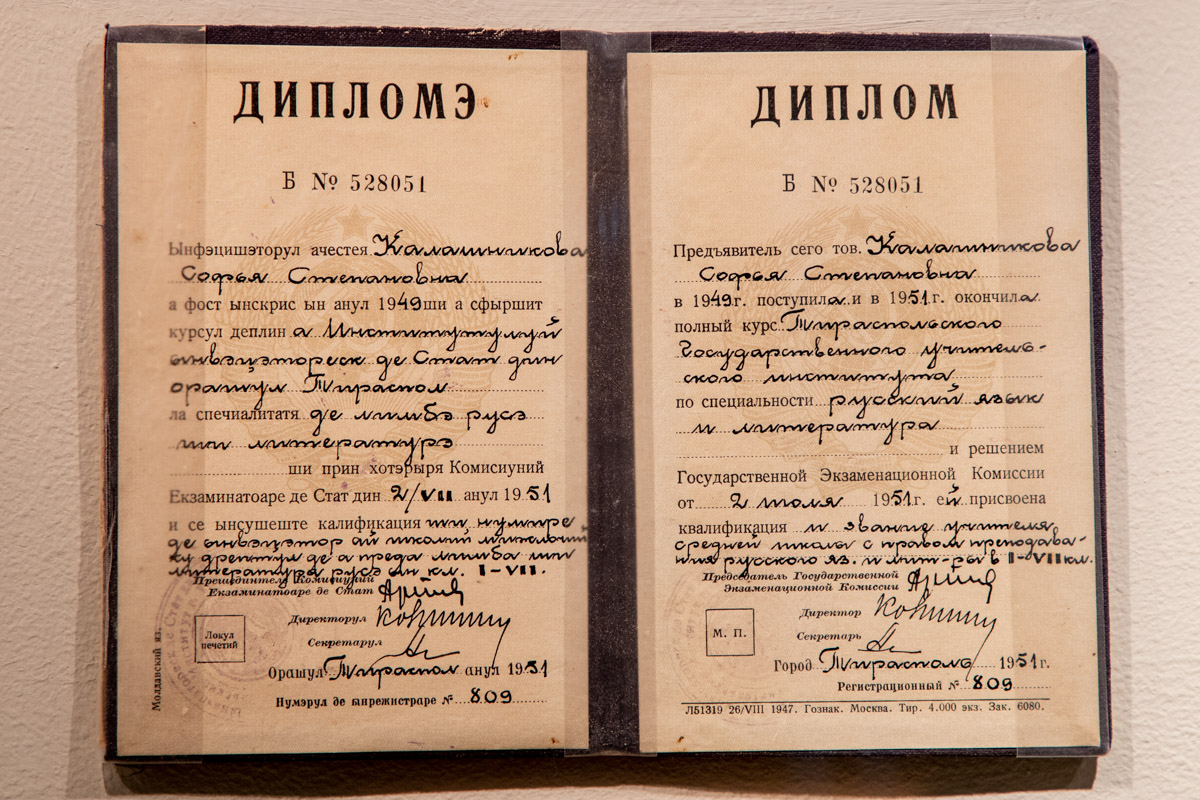 ДИПЛОМЭ
Б № 528051
Ынфэцишэторул ачестея Калашникова
Софья Степановна
а фост ынскрис ын анул 1949 ши а сфыршит
курсул деплин а Институтулуй
ынвэцэтореск де Стат дин
орашул Тираспол
ла спечиалитатя де лимбэ русэ
ши литературэ
ши прин хотэрыря Комисиуний
Екзаминатоаре де Стат дин 2/VII анул 1951
и се ынсушеште калификация ши нумире
де ынвэцэтор ай школий
ку дрептул де а преда лимба ши
литература русэ ын кл. I-VII.
Прешединтеле Комисиуний
Екзаминатоаре де Стат
Локул
печетий
Директорул
Секретарул
Орашул Тираспол анул 1951
Нумэрул де ынрежистраре № 809
Молдавский яз.
ДИПЛОМ
Б № 528051
Предъявитель сего тов. Калашникова
Софья Степановна
в 1949 г. поступила и в 1951 г. окончила
полный курс Тираспольского
Государственного учитель-
ского института
по специальности русский язык
и литература
и решением
Государственной Экзаменационной Комиссии
от 2 июля 1951 г. ей присвоена
квалификация и звание учителя
средней школы с правом преподава-
ния русского яз. и лит-ры в I-VII кл.
Председатель Государственной
Экзаменационной Комиссии
М. П.
Директор
Секретарь
Город Тирасполь 1951 г.
Регистрационный № 809
Л51319 26/VIII 1947. Гознак. Москва. Тир. 4.000 экз. Зак. 6080.